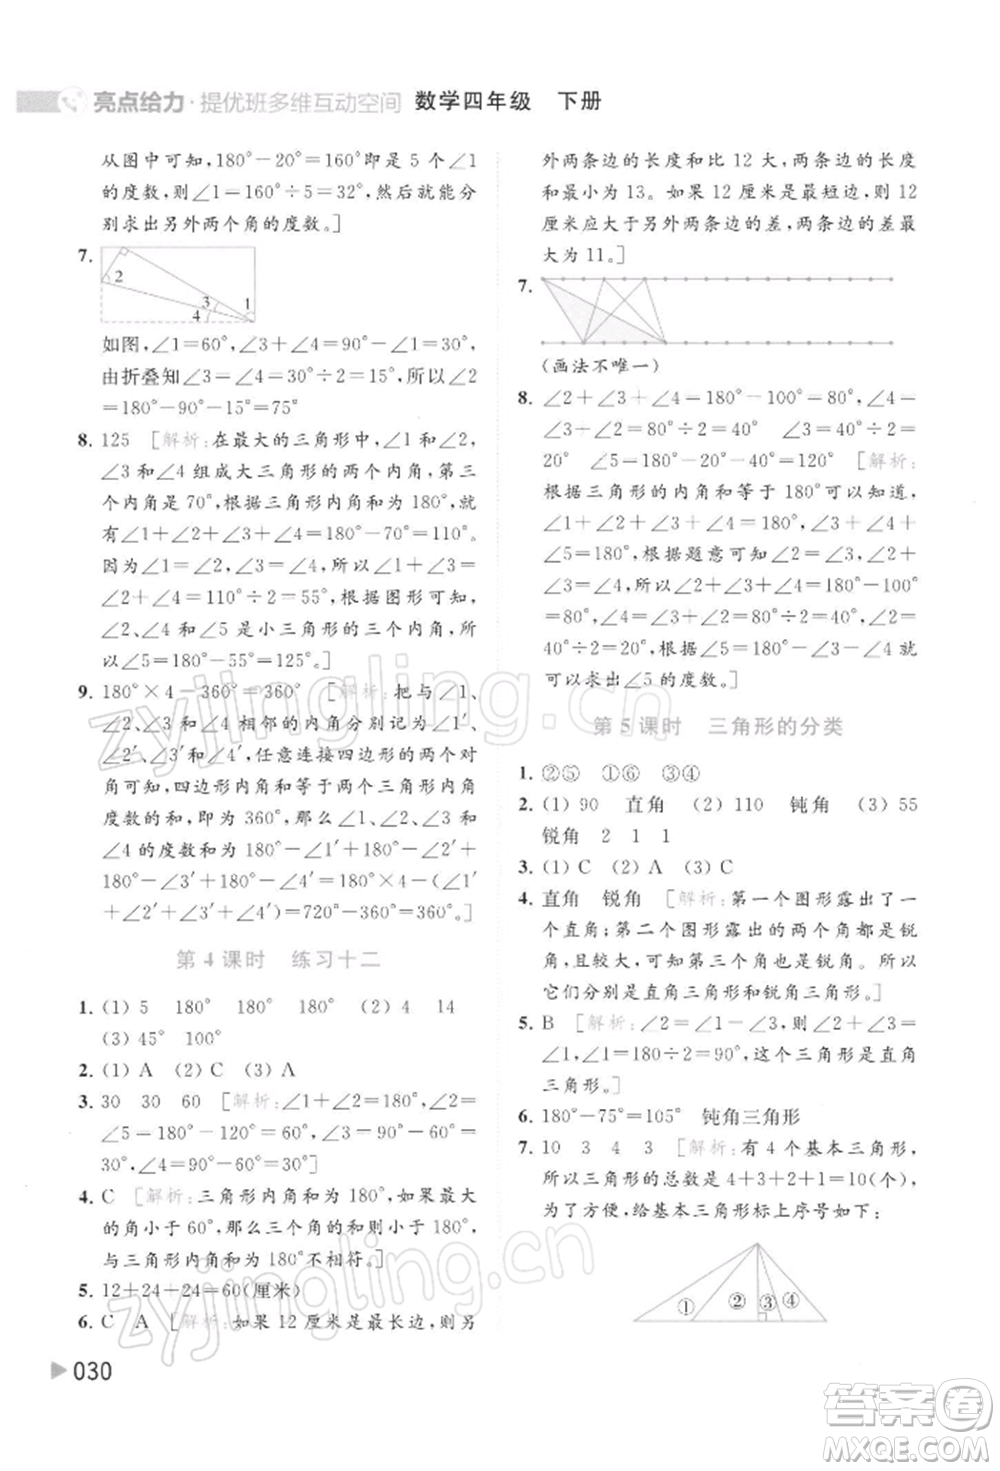 亮点给力·提优班多维互动空间 数学四年级 下册
从图中可知，180°－20°＝160°即是 5 个∠1
的度数，则∠1＝160°÷5＝32°，然后就能分
别求出另外两个角的度数。］
7.
2
3
1
4
如图，∠1＝60°，∠3＋∠4＝90°－∠1＝30°，
由折叠知∠3＝∠4＝30°÷2＝15°，所以∠2
＝180°－90°－15°＝75°
8. 125 ［解析：在最大的三角形中，∠1和∠2，
∠3 和∠4 组成大三角形的两个内角，第三
个内角是 70°，根据三角形内角和为 180°，就
有∠1＋∠2＋∠3＋∠4＝180°－70°＝110°。
因为∠1＝∠2，∠3＝∠4，所以∠1＋∠3＝
∠2＋∠4＝110°÷2＝55°，根据图形可知，
∠2、∠4、∠5 是小三角形的三个内角，所
以，∠5＝180°－55°＝125°。］
9. 180°×4－360°＝360° ［解析：把与∠1、
∠2、∠3、∠4 相邻的内角分别记为∠1′、
∠2′、∠3′、∠4′，任意连接四边形的两个对
角可知，四边形内角和等于两个三角形内角
度数的和，即为 360°，那么∠1、∠2、∠3 和
∠4 的度数和为（∠1＋∠1′＋∠2＋∠2′＋
∠3＋∠3′＋∠4＋∠4′）－（∠1′＋∠2′
＋∠3′＋∠4′）＝720°－360°＝360°。］
第 4 课时 练习十二
1. (1) 5 180° 180° 180° (2) 4 14
(3) 45° 100°
2. (1) A (2) C (3) A
3. 30 30 60 ［解析：∠1＋∠2＝
∠5＝180°－120°＝60°，∠1＝∠2＝
30°，∠4＝90°－∠1＝60°。］
4. C ［解析：三角形内角和为 180°，如果最大
的角小于 60°，那么三个角的和则小于 180°，
与三角形内角和为180°不相符。］
5. 12＋24＋24＝60(厘米)
6. C A ［解析：如果 12 厘米是最长边，则另
外两条边的长度和比 12 大，两条边的长度
和最小为 13。如果 12 厘米是最短边，则 12
厘米应大于另外两条边的差，两条边的差最
大为 11。］
7.
(画法不唯一)
8. ∠2＋∠3＋∠4＝180°－100°＝80°，∠4＝
∠2＋∠3＝80°÷2＝40° ∠2＝40°÷2＝
20° ∠5＝180°－∠4－∠2＝120° ［解析：
根据三角形的内角和等于 180°可以知道，
∠1＋∠2＋∠3＋∠4＝180°，∠2＋∠4＋
∠5＝180°，根据题意可知∠2＝∠3，∠1＝
100°，所以∠2＋∠3＋∠4＝180°－100°
＝80°，∠4＝80°÷2＝40°，∠2＝∠3＝
40°÷2＝20°，再根据∠2＋∠4＋∠5＝180°
可以求出∠5 的度数。］
第 5 课时 三角形的分类
1. ②⑤ ①⑥ ③④
2. (1) 90 直角 (2) 110 钝角 (3) 55
锐角 2 1 1
3. (1) C (2) A (3) C
4. 直角 锐角 ［解析：第一个图形露出了一
个直角，第二个图形露出的两个角都是锐
角，且较大，可知第三个角也是锐角。所以
它们分别是直角三角形和锐角三角形。］
5. B ［解析：∠2＋∠3＝∠1，则∠1＋∠2＋
∠3＝180°，∠1＝180÷2＝90°，这个三角形是直角
三角形。］
6. 180°－75°＝105° 钝角三角形
7. 10 3 4 3 ［解析：有 4 个基本三角形，
所以三角形的总数是 4＋3＋2＋1＝10(个)。
为了方便，给基本三角形标上序号如下：
① ② ③ ④
030
zyjingling.cn
zyjingling.cn
答案圈
MXQE.COM